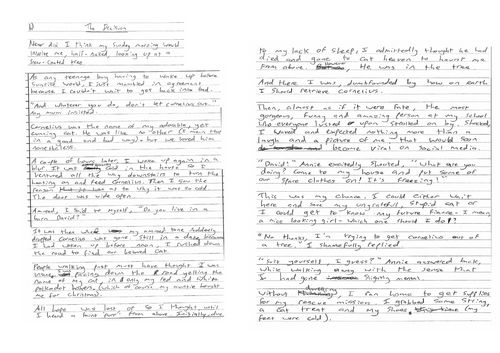 The Decision
Never did I think my Sunday morning would
involve me, half-naked, looking up at a
snow-coated tree.
As any teenage boy having to wake up before
sunrise would, I just mumbled in agreement
because I couldn't wait to get back into bed.
"And whatever you do, don't let cornelius out."
My mum insisted.
Cornelius was the name of my adorable, yet
cunning cat. He was like no other (I mean this
in a good and bad way) but we loved him
nonetheless.
A couple of hours later, I woke up again in a
blur. It was cold in the house so I
ventured all the way downstairs to turn the
heating on and feed Cornelius. Then I saw the
reason as to why it was so cold
The door was wide open.
Amazed, I said to myself, "Do you live in a
barn David?"
It was then where my amazed tone suddenly
drifted Cornelius was gone. Still in a daze
I had woken up before noon I rushed down
the road to find our beloved cat.
People walking past must have thought I was
down the road yelling the
name of my cat, in only my red and white
Polkadot boxers, (which of course my auntie bought
me for Christmas).
All hope was lost or so I thought, until
I heard a faint purr from above. Initially, due
to my lack of sleep, I admittedly thought he had
died and gone to cat heaven to haunt me
from above. He was in the tree.
And there I was, dumbfounded by how on earth
I should retrieve cornelius.
Then, almost as if it were fate, the most
gorgeous, funny and amazing person at my school
who everyone listened to upon strolled on by. Shocked,
I waved and expected nothing more than a
laugh and a picture of me that would soon
become viral on social media.
"David!" Annie excitedly shouted, "What are you
doing? Come to my house and put some of
our spare clothes on! It's freezing!"
This was my chance, I could either wait
here and save my ungrateful, stupid cat or
I could get to know my future fiance. I mean
a nice looking girl which one should I do?
"No thanks, I'm trying to get cornelius out of
a tree." I shamefully replied
"Suit yourself I guess?" Annie answered back,
while walking away with the sense that
I had gone slightly mental.
Without I ran home to get supplies
for my rescue mission. I grabbed some string,
a cat treat and my shoes (my
feet were cold).